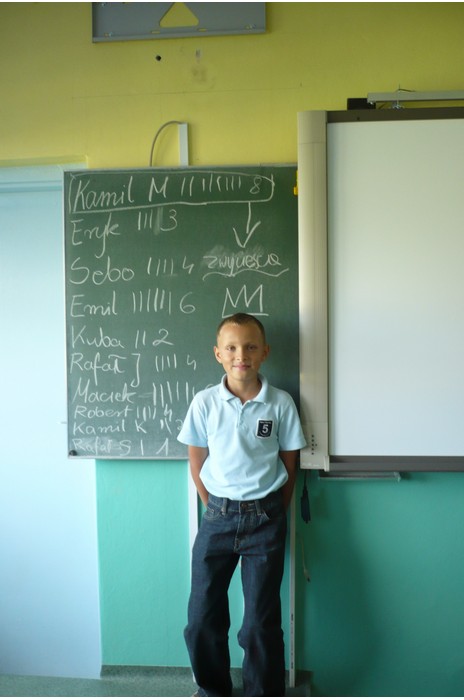 Kamil M |||||||| 8
Eryk |||| 3
Sebo |||| 4 zwycięsca
Emil |||||| 6
Kuba || 2
Rafał J |||| 4
Maciek
Robert |||| 4
Kamil K
Rafał S | 1
5